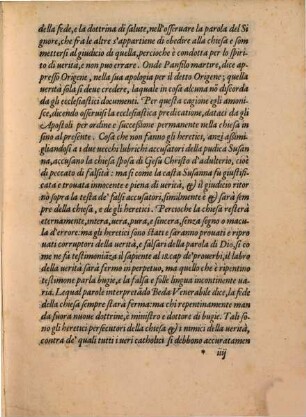 della fede, e la dottrina di salute, nell'osseruare la parola del Si
gnore, che fra le altre s'appartiene di obedire alla chiesa e som
mettersi al giudicio di quella, percioche è condotta per lo spiri
to di uerità, e non puo errare. Onde Panfilo martire, dice ap
presso Origene, nella sua apologia per il detto Origene; quella
uerità sola si deue credere, laquale in cosa alcuna nõ discorda
da gli ecclesiastici documenti. Per questa cagione egli amoni-
sce, dicendo osseruisi la ecclesiastica predicatione, dataci da gli
Apostoli per ordine e successione permanente nella chiesa in
sino al presente. Cosa che non fanno gli heretici, anzi assimi-
gliandosi a i due uecchi lubrichi accusatori della pudica Susan
na, accusano la chiesa sposa di Giesu Christo d'adulterio, cioè
di peccato di falsità: ma si come la casta Susanna fu giustifi
cata e trouata innocente e piena di uerità, & il giudicio ritor
nò sopra la testa de' falsi accusatori, similmente è & sarà sem
pre della chiesa, e de gli heretici. Percioche la chiesa resterà
eternamente, intera, uera, pura, e sincera, senza segno o macu
la d'errore: ma gli heretici sono stati e saranno prouati e ripro
uati corruttori della uerità, e falsari della parola di Dio, si co
me ne fa testimoniãza il sapiente al 12. cap de' prouerbi, il labro
della uerità sarà fermo in perpetuo, ma quello che è ripentino
testimone parla bugie, e la falsa e folle lingua incontinente ua
ria. Lequal parole interpretãdo Beda Venerabile dice, la fede
della chiesa sempre starà ferma: ma chi repentinamente man
da fuora nuoue dottrine, è ministro e dottore di bugie. Tali so-
no gli heretici persecutori della chiesa & i nimici della uerità,
contra de' quali tutti i ueri catholici si debbono accuratamen
* iiij